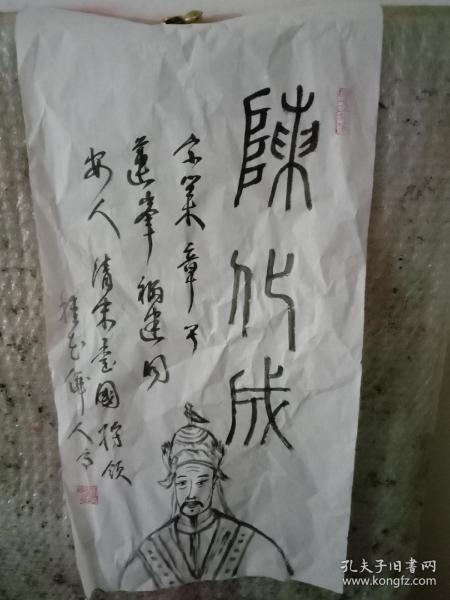 陳化成
字業章号
蓮峯福建同
安人清末愛國將領
孔夫子旧书网
www.kongfz.com